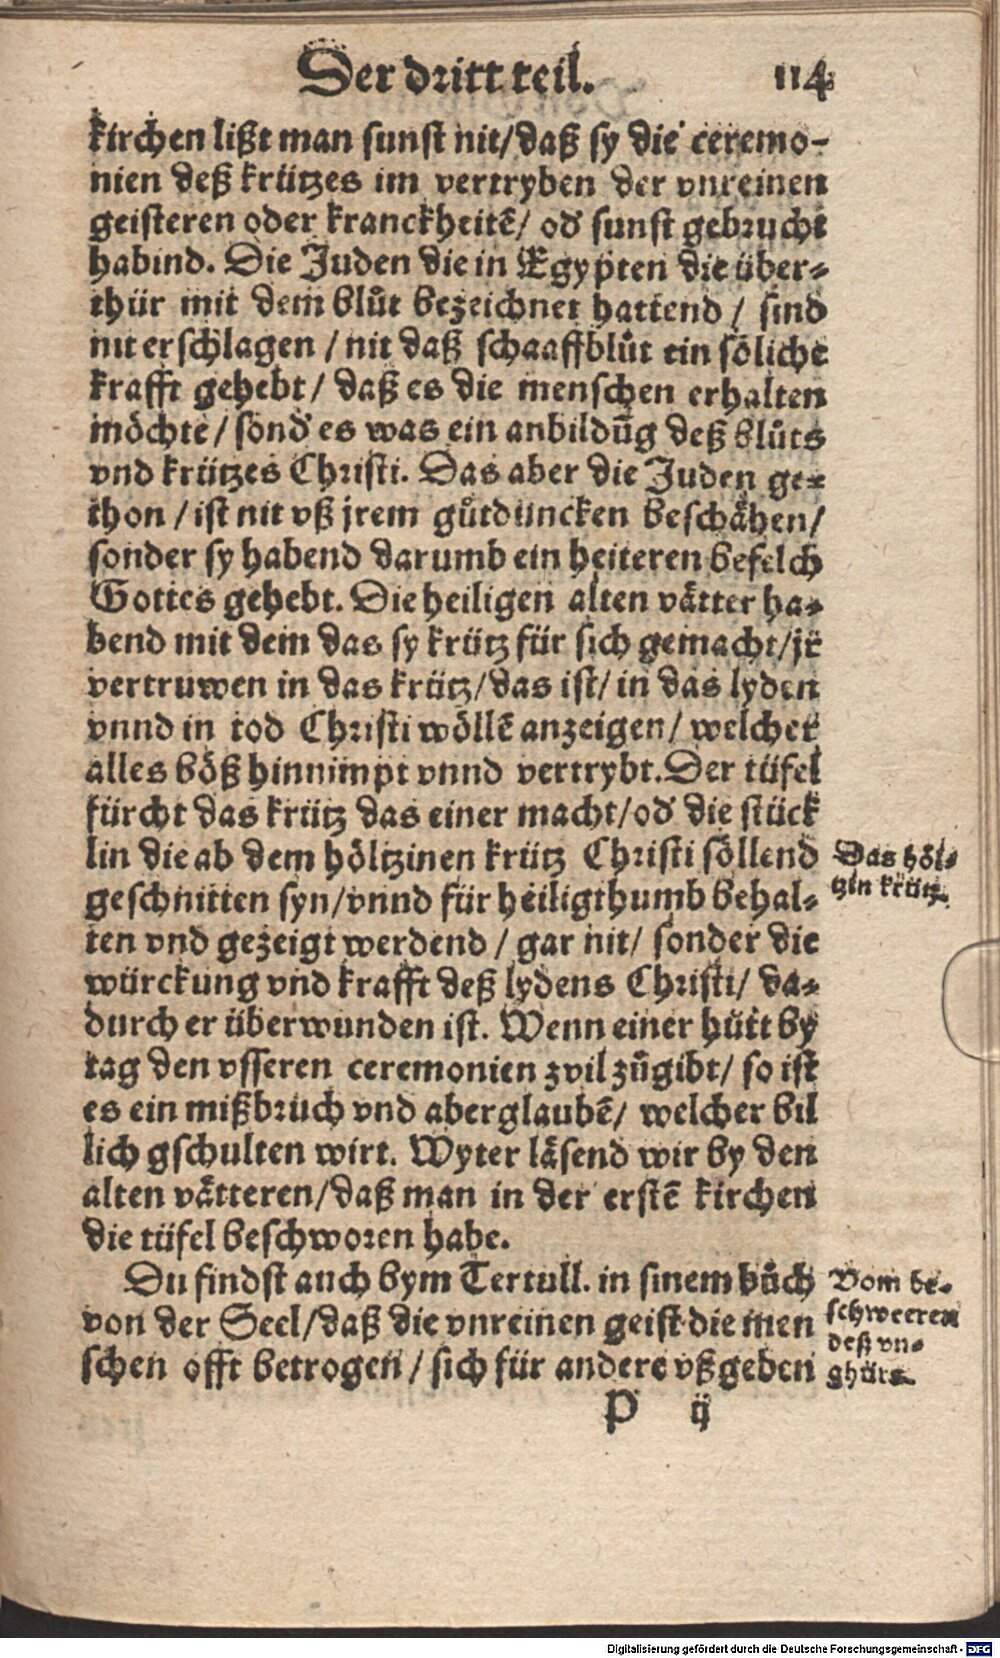 Der dritt teil. 114
kirchen lißt man sunst nit/daß sy die ceremo-
nien deß krützes im vertryben der vnreinen
geisteren oder kranckheitē/ od' sunst gebrucht
habind. Die Juden die in Egypten die über-
thür mit dem blůt bezeichnet hattend / sind
nit erschlagen / nit daß schaaffblůt ein söliche
krafft gehebt / daß es die menschen erhalten
möchte / sond' es was ein anbildūg deß blůts
vnd krützes Christi. Das aber die Juden ge-
thon / ist nit vß jrem gůtduncken beschähen/
sonder sy habend darumb ein heiteren befelch
Gottes gehebt. Die heiligen alten vätter ha-
bend mit dem das sy krütz für sich gemacht/jr
vertruwen in das krütz/das ist/ in das lyden
vnnd in tod Christi wöllē anzeigen/ welcher
alles böß hinnimpt vnnd vertrybt. Der tüfel
fürcht das krütz das einer macht/od' die stück
lin die ab dem höltzinen krütz Christi söllend
geschnitten syn/vnnd für heiligthumb behal-
ten vnd gezeigt werdend / gar nit/ sonder die
würckung vnd krafft deß lydens Christi/ da-
durch er überwunden ist. Wenn einer hütt by
tag den vsseren ceremonien zvil zůgibt/ so ist
es ein mißbruch vnd aberglaubē/ welcher bil
lich gschulten wirt. Wyter läsend wir by den
alten vätteren/daß man in der erstē kirchen
die tüfel beschworen habe.
Du findst auch bym Tertull. in sinem bůch
von der Seel/daß die vnreinen geist die men
schen offt betrogen / sich für andere vßgeben
P ij
Das höl-
tzin krütz.
Vom be-
schweeren
deß vn-
ghür.
Digitalisierung gefördert durch die Deutsche Forschungsgemeinschaft - DFG